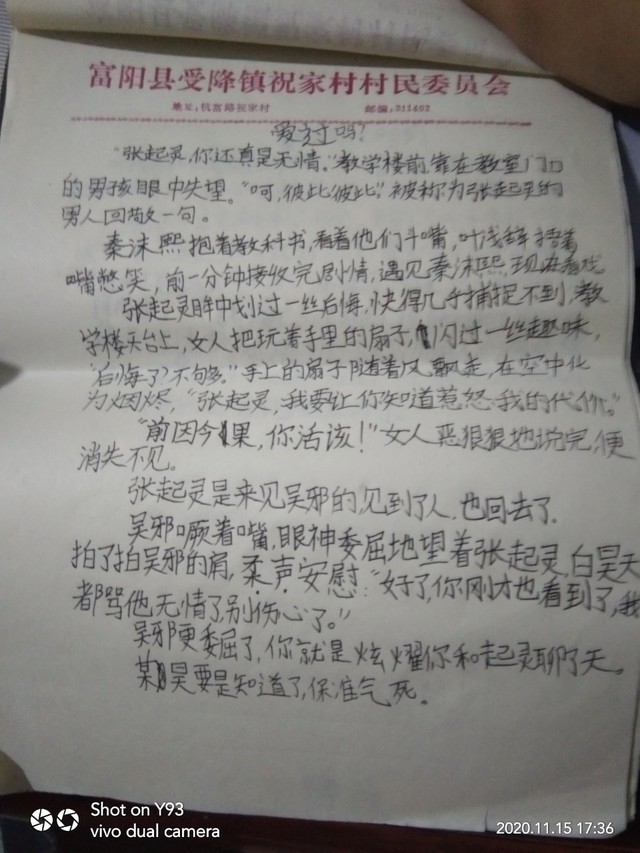 富阳县受降镇祝家村村民委员会
地址:杭富路祝家村 邮编:311402
爱过吗?
"张起灵,你还真是无情。"教学楼前,靠在教室门口
的男孩眼中失望。"呵,彼此彼此"被称为张起灵的
男人回敬一句。
秦沫熙抱着教科书,看着他们斗嘴,叶浅辞捂着
嘴憋笑,前一分钟接收完剧情,遇见秦沫熙,现在看戏
张起灵眸中划过一丝后悔,快得几乎捕捉不到,教
学楼天台上,女人把玩着手里的扇子,闪过一丝趣味,
"后悔了?不够。"手上的扇子随着风飘走,在空中化
为烟烬,"张起灵,我要让你知道惹怒我的代价。"
"前因今果,你活该!"女人恶狠狠地说完,便
消失不见。
张起灵是来见吴邪的,见到了人,也回去了.
吴邪噘着嘴,眼神委屈地望着张起灵,白昊天
拍了拍吴邪的肩,柔声安慰:"好了,你刚才也看到了,我
都骂他无情了,别伤心了。"
吴邪更委屈了,你就是炫耀你和起灵聊了天。
某昊要是知道了,保准气死。
Shot on Y93
vivo dual camera
2020.11.15 17:36